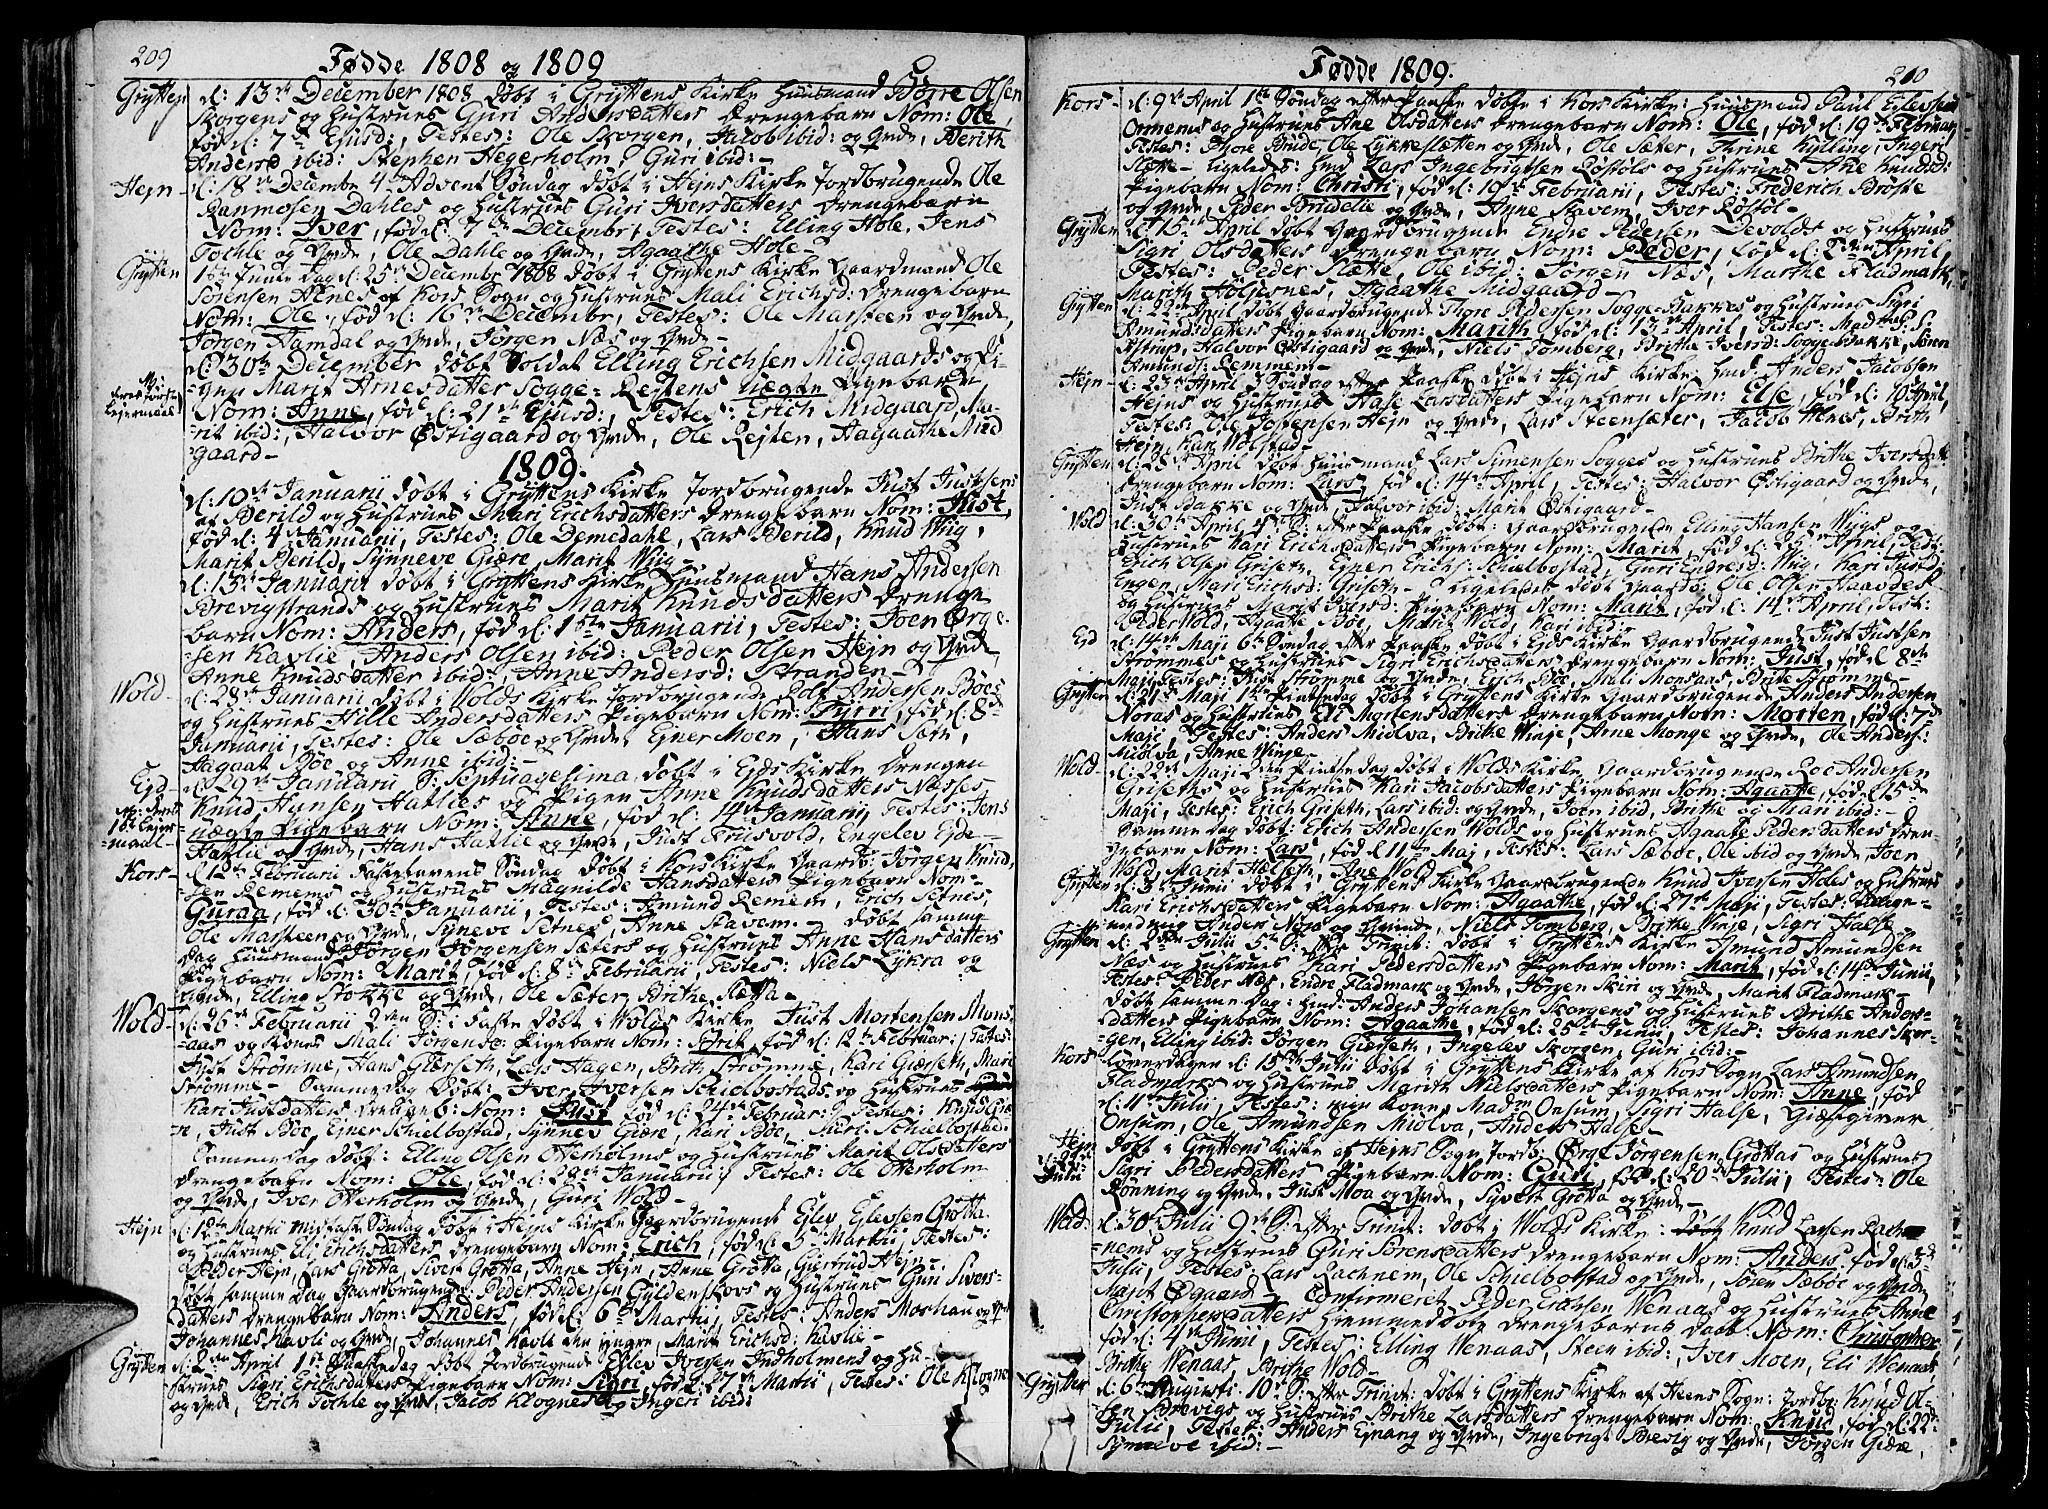 209
Fødde 1808 og 1809
Grytten d: 13de December 1808 døbt i Gryttens Kirke Huusmand Børre Olsen
Skorgens og Hustrues Guri Andersdatters Drengebarn Nom: Ole,
fød d: 7de Ejusd: Testes: Ole Skorgen, Jacob ibid: og Qvde, Berith
Anders: ibid: Stephen Hegerholm, Guri ibid:-
Hejn d: 18de Decembr 4de Advent Søndag døbt i Hejns Kirke Jordbrugende Ole
Dahles og Hustrues Guri Iversdatters Drengebarn
Nom: Iver, fød d: 7de Decembr, Testes: Elling Hole, Jens
Tochle og Qvde, Ole Dahle og Qvde, Agaathe Hole-
Grytten 1ste Juule Dag d: 25de Decembr 1808 døbt i Gryttens Kirke Gaardmand Ole
Sørensen Alnes af Kors Sogn og Hustrues Mali Erichsd: Drengebarn
Nom: Ole, fød d: 16de Decembr, Testes: Ole Marsteen og Qvde,
Jørgen Hamdal og Qvde, Jørgen Næs og Qvde-
d: 30te December døbt Soldat Elling Erichsen Midgaards og Pi-
gen Marit Arnesdatter Sogge-Rejtens uægte Pigebarn
Nom: Anne, fød d: 21de Ejusd: Testes: Erich Midgaard, Ma-
rit ibid:, Halvor Østigaard og Qvde, Ole Rejten, Hagaathe Mid
gaard-
1809.
d: 10de Januarii døbt i Gryttens Kirke Jordbrugende Just Justsen
af Berild og Hustrues Mari Erichsdatters Drengebarn Nom: Just,
fød d: 4de Januarii, Testes: Ole Demedahl, Lars Berild, Knud Wiig,
Marit Berild, Synneve Giære, Marit Wiig
d: 13de Januarii døbt i Gryttens Kirke Huusmand Hans Andersen
Brevigstrands og Hustrues Marit Knudsdatters Drenge
barn Nom: Anders, fød d: 1ste Januarii, Testes: Joen Ørge-
sen Kavlie, Anders Olsen ibid: Peder Olsen Hejn og Qvde,
Anne Knudsdatter ibid:, Anne Andersd: Stranden-
Wold- d: 28de Januarii døbt i Wolds Kirke Jordbrugende Andersen Bøes
og Hustrues Hille Andersdatters Pigebarn Nom: fød d: 8de
Januarii, Testes: Ole Sæbøe og Qvde, Ejner Moen, Hans
Hagaat Bøe og Anne ibid:-
Ejd- d: 29de Januarii S: Septuagesima døbt i Ejds Kirke Drengen
Knud Hansen Hatlies og Pigen Anne Knudsdatters Næsses
uægte Pigebarn Nom: Anne, fød d: 14de Januarij, Testes: Jens
Hatlie og Qvde, Hans Hatlie og Qvde, Just Engelev Ejde-
Kors- d: 12te Februarii Fastelavens Søndag døbt i Kors Kirke Gaardb: Jørgen Knud-
sen Remems og Hustrues Magnilde Hansdatters Pigebarn Nom-
Guraa, fød d: 30te Januarii, Testes: Amund Remem, Erich Setnes,
Ole Marsteen og Qvde, Synneve Setnes, Anne Stavem.- døbt samme
Dag Huusmand Jørgen Jørgensen Sæters og Hustrues Anne Hansdatters
Pigebarn Nom: Marit, fød d: 8de Februarii, Testes: Niels Lykra og
Qvde, Elling Stokke og Qvde, Ole Sæter, Brithe Sletta-
Wold- d: 26de Februarii 2den S: i Faste døbt i Wolds Kirke Just Mortensen Mons-
aas og Kones Mali Jørgensd: Pigebarn Nom: Brit, fød d: 12te Februar:, Testes:
Just Strømme, Hans Gierseth, Lars Hagen, Brit Strømme, Kari Gierseth, Mari
Strømme- Samme Dag Døbt: Iver Iversen Schielbostads og Hustrues
Kari Justdatters Drengeb: Nom: Just fød d: 24de Februar: Testes: Knud Giæ-
re, Just Bøe, Ejner Schielbostad, Synnev Giære, Kari Bøe, Guri Schielbostad-
Samme Dag døbt: Elling Olsen Otterholms og Hustrues Marit Olsdatters
Drengebarn Nom: Ole, fød d: Januarii, Testes: Ole Otterholm
og Qvde, Iver Otterholm og Qvde, Guri Wold-
Hejn d: 12te Martii Midfaste Søndag døbt i Hejns Kirke Gaardbrugende Ejlev Ejlevsen Grøtta
og Hustrues Eli Erichsdatters Drengebarn Nom: Erich, fød d: 5te Martii, Testes:
Peder Hejn, Lars Grøtta, Siver Grøtta, Anne Hejn, Anne Grøtta, Giertrud Hejn-
døbt samme Dag Gaardbrugende Peder Andersen Gyldenskovs og Hustrues Guri Sivers-
datters Drengebarn Nom: Anders, fød d: 6te Martii, Testes: Anders Morhau og Qvde
Johannes Kavli og Qvde, Johannes Kavli den yngre, Marit Erichsd: Kavlie-
Grytten d: 2den April 1ste Paaskedag døbt Jordbrugende Ellev Iversen Indholmens og Hu-
strues Sigri Erichsdatters Pigebarn Nom: Sigri, fød d: 27de Martii, Testes: Ole Klognes
og Qvde, Erich Tochle og Qvde, Jacob Klognes og Ingeri ibid:
210
Fødde 1809.
Kors- d: 9de April 1ste Søndag efter Paaske døbt i Kors Kirke: Huusmand Paul Ellevsen
Ormems og Hustrues Ane Olsdatters Drengebarn Nom: Ole, fød d: 19de Februar,
Testes: Thore Brude, Ole Lykkesletten og Qvde, Ole Sæter, Thrine Kylling, Ingeri
Slette- ligeledes: Hmd Lars Ingebrigtsen Røstøls og Hustrues Ane Knudsd:
Pigebarn Nom: Christi, fød d: 19de Februarii, Testes: Frederich Brøste
og Qvde, Peder Brudelie og Qvde, Anne Stavem, Iver Røstøl-
Grytten d: 15de April døbt Gaardbrugende Endre Pedersen Devolds og Hustrues
Sigri Olsdatters Drengebarn Nom: Peder, fød d: 2den April,
Testes: Peder Slette, Ole ibid: Jørgen Næs, Marthe Fladmark,
Marith Holjesnes, Agaathe Midgaard-
Grytten d: 22de April døbt Gaardbrugende Thore Pedersen Sogge-Bakkes og Hustrues Sigri
Amundsdatters Pigebarn Nom: Marith, fød d: 13de April, Testes: Madme S:
Astrup, Halvor Østigaard og Qvde, Niels Tomberg, Brithe Iversd: Sogge-Bakke, Søren
Amunds: Remmem-
Hejn- d: 23de April 3 Søndag efter Paaske døbt i Hejns Kirke: Hmd Anders Jacobsen
Hejns og Hustrues Aase Larsdatters Pigebarn Nom: Else, fød d: 10 April,
Testes: Ole Jostensen Hejn og Qvde, Lars Steensæter, Jacob Alnes, Brith
Hejn, Kari Wolstad-
Grytten d: 28de April døbt Huusmand Lars Simensen Sogges og Hustrues Brithe Iversdatt
Drengebarn Nom: Lars, fød d: 14de April, Testes: Halvor Østigaard og Qvde,
Just Bakke og Qvde, Halvor ibid: Marit Østigaard-
Wold d: 30te April 4de S: efter Paaske døbt: Gaardbrugende Elling Hansen Wiigs og
Hustrues Kari Erichsdatters Pigebarn Nom: Marit, fød d: 25de April, Test:
Erich Olsen Griseth, Ejner Erichs: Schielbostad, Guri Endresd: Wiig, Kari Justd:
Engen, Mari Erichsd: Griseth- Ligeledes døbt Gaardb: Ole Olsen Haavdes
og Hustrues Marit Iversd: Pigebarn Nom: Marit, fød d: 14de April, Test:
Peder Wold, Agaathe Bøe, Marit Wold, Kari ibid:-
Ejd d: 14de Maji 6te Søndag efter Paaske døbt i Ejds Kirke Gaardbrugende Just Justsen
Strømmes og Hustrues Sigri Erichsdatters Drengebarn Nom: Just, fød d: 8de
Maji, Testes: Just Strømme og Qvde, Erich Bøe, Mali Monsaas, Brite Strømme-
Grytten d: 21de Maji 1ste Pintsedag døbt i Gryttens Kirke Gaardbrugende Anders Andersen
Noraas og Hustrues Eli Mortensdatters Drengebarn Nom: Morten, fød d: 7de
Maji, Testes: Anders Miolva, Brithe Winje, Arne Monge og Qvde, Ole Anders:
Miolva, Anne Winje-
Wold d: 22de Maji 2den Pintsedag døbt i Wolds Kirke Gaardbrugende Andersen
Griseths og Hustrues Kari Jacobsdatters Pigebarn Nom: Agaathe, fød d: 15de
Maji, Testes: Erich Griseth, Lars ibid: og Qvde, Joen ibid, Brithe og Mari ibid:-
Samme Dag døbt: Erich Andersen Wolds og Hustrues Agaate Pedersdatters Dren-
gebarn Nom: Lars, fød d: 11te Maj, Testes: Lars Sæbøe, Ole ibid og Qvde, Joen
Wold, Marit Helseth, Ane Wold-
Grytten d: 3de Junii døbt i Gryttens Kirke Gaardbrugende Knud Iversen Holes og Hustrues
Kari Erichsdatters Pigebarn Nom: Agaathe, fød d: 27de Maji, Testes:
Anders Noraas og Qvinde, Niels Tomberg, Brithe Winje, Sigri Halse-
Grytten d: 2den Julii 5te S: efter Trinit: døbt i Gryttens Kirke Amund Amundsen
Næs og Hustrues Kari Pedersdatters Pigebarn Nom: Marit, fød d: 14de Junii,
Testes: Peder Næs, Endre Fladmark og Qvde, Jørgen Skiri og Qvde, Marit Fladmark-
Døbt samme Dag: Hmd: Anders Johansen Skorgens og Hustrues Brithe Anders-
datters Pigebarn Nom: Agaathe, fød d: 25de Junii, Testes: Johannes Skor-
gen, Elling ibid: Jørgen Gierseth, Ingeles Skorgen, Guri ibid:-
Kors Løverdagen d: 15de Julii døbt i Gryttens Kirke af Kors Sogn Lars Amundsen
Fladmarks og Hustrues Marith Nielsdatters Pigebarn Nom: Anne, fød
d: 11te Julii, Testes: min Kone, Madm Onsum, Sigri Halse, Giæstgiver
Onsum, Ole Amundsen Miolva, Anders Halse-
Hejn Døbt i Gryttens Kirke af Hejns Sogn Jordb: Ørge Jørgensen Grøttas og Hustrues
Sigri Pedersdatters Pigebarn Nom: Guri, fød d: 20de Julii, Testes: Ole
Rønning og Qvde, Just Moa og Qvde, Syvert Grøtta og Qvde-
Wold- d: 30te Julii 9de S: efter Trinit: døbt i Wolds Kirke: Knud Larsen Rach-
nems og Hustrues Guri Sørensdatters Drengebarn Nom: Anders, fød d: 3de
Julii, Testes: Lars Rachnem, Ole Schielbostad og Qvde, Søren Sæbøe og Qvde
Marit Øgaard- Confirmeret Peder Erichsen Wenaas og Hustrues Anne
Christophersdatters hjemmedøbte Drengebarns Daab: Nom: Christopher,
fød d: 4de Junii, Testes: Elling Wenaas, Steen ibid:, Iver Moen, Eli Wenaas,
Brithe Wenaas, Brithe Wold-
Grytten d: 6te Augusti 10de S: efter Trinit: døbt i Gryttens Kirke af Heens Sogn: Jordb: Knud Ol-
sen Brevigs og Hustrues Brithe Larsdatters Drengebarn Nom: Knud, fød d: 22de
Julii, Testes: Anders Ejnang og Qvde, Ingebrigt Brevig og Qvde, Jørgen Giære,
Synneve ibid:-